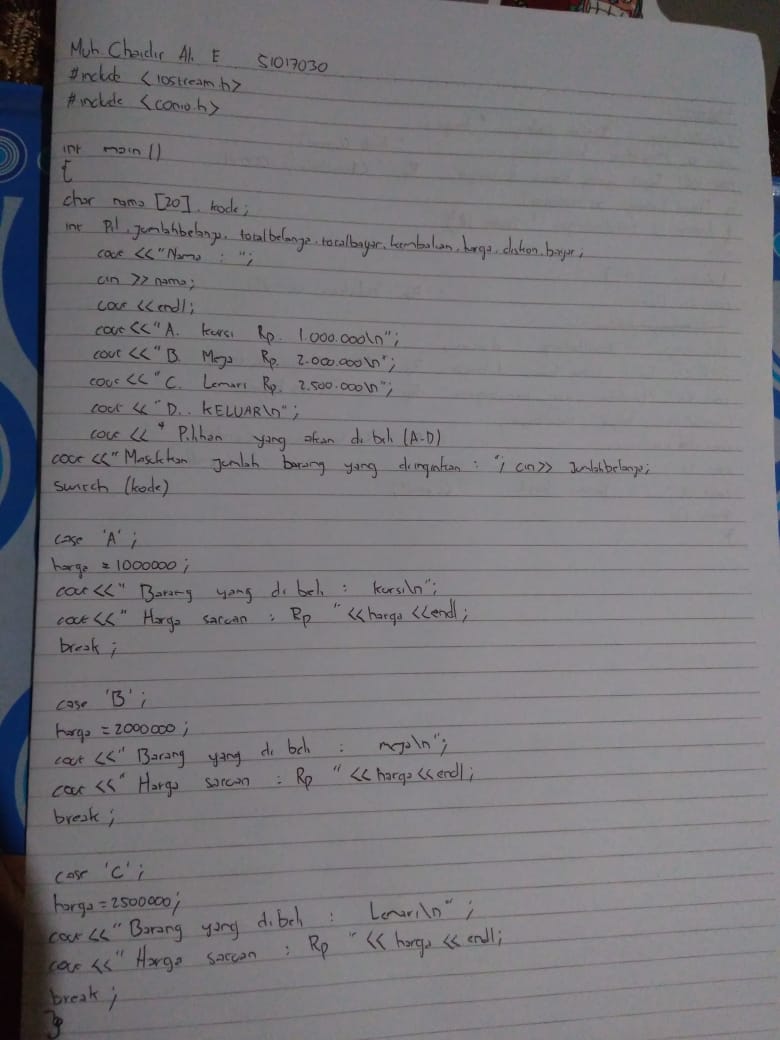 Muh. Chaidir Ali E 51017030
#include <iostream.h>
#include <conio.h>
int main ()
{
char nama [20], kode;
int Pil, jumlahbelanja, totalbelanja, totalbayar, kembalian, harga, diskon, bayar;
cout <<"Nama : ";
cin >> nama;
cout <<endl;
cout <<"A. Kursi Rp. 1.000.000\n";
cout <<"B. Meja Rp. 2.000.000\n";
cout <<"C. Lemari Rp. 2.500.000\n";
cout <<"D.. KELUAR\n";
cout <<" Pilihan yang akan di beli (A-D)
cout <<"Masukkan jumlah barang yang diinginkan : "; cin>> Jumlahbelanja;
switch (kode)
case 'A' ;
harga = 1000000 ;
cout <<" Barang yang di beli : kursi\n";
cout <<" Harga satuan : Rp " <<harga <<endl;
break ;
case 'B' ;
harga = 2000000 ;
cout <<" Barang yang di beli : meja\n";
cout <<" Harga satuan : Rp " << harga <<endl;
break ;
case 'C' ;
harga = 2500000;
cout <<" Barang yang dibeli : Lemari\n" ;
cout <<" Harga satuan : Rp " << harga << endl;
break ;
}